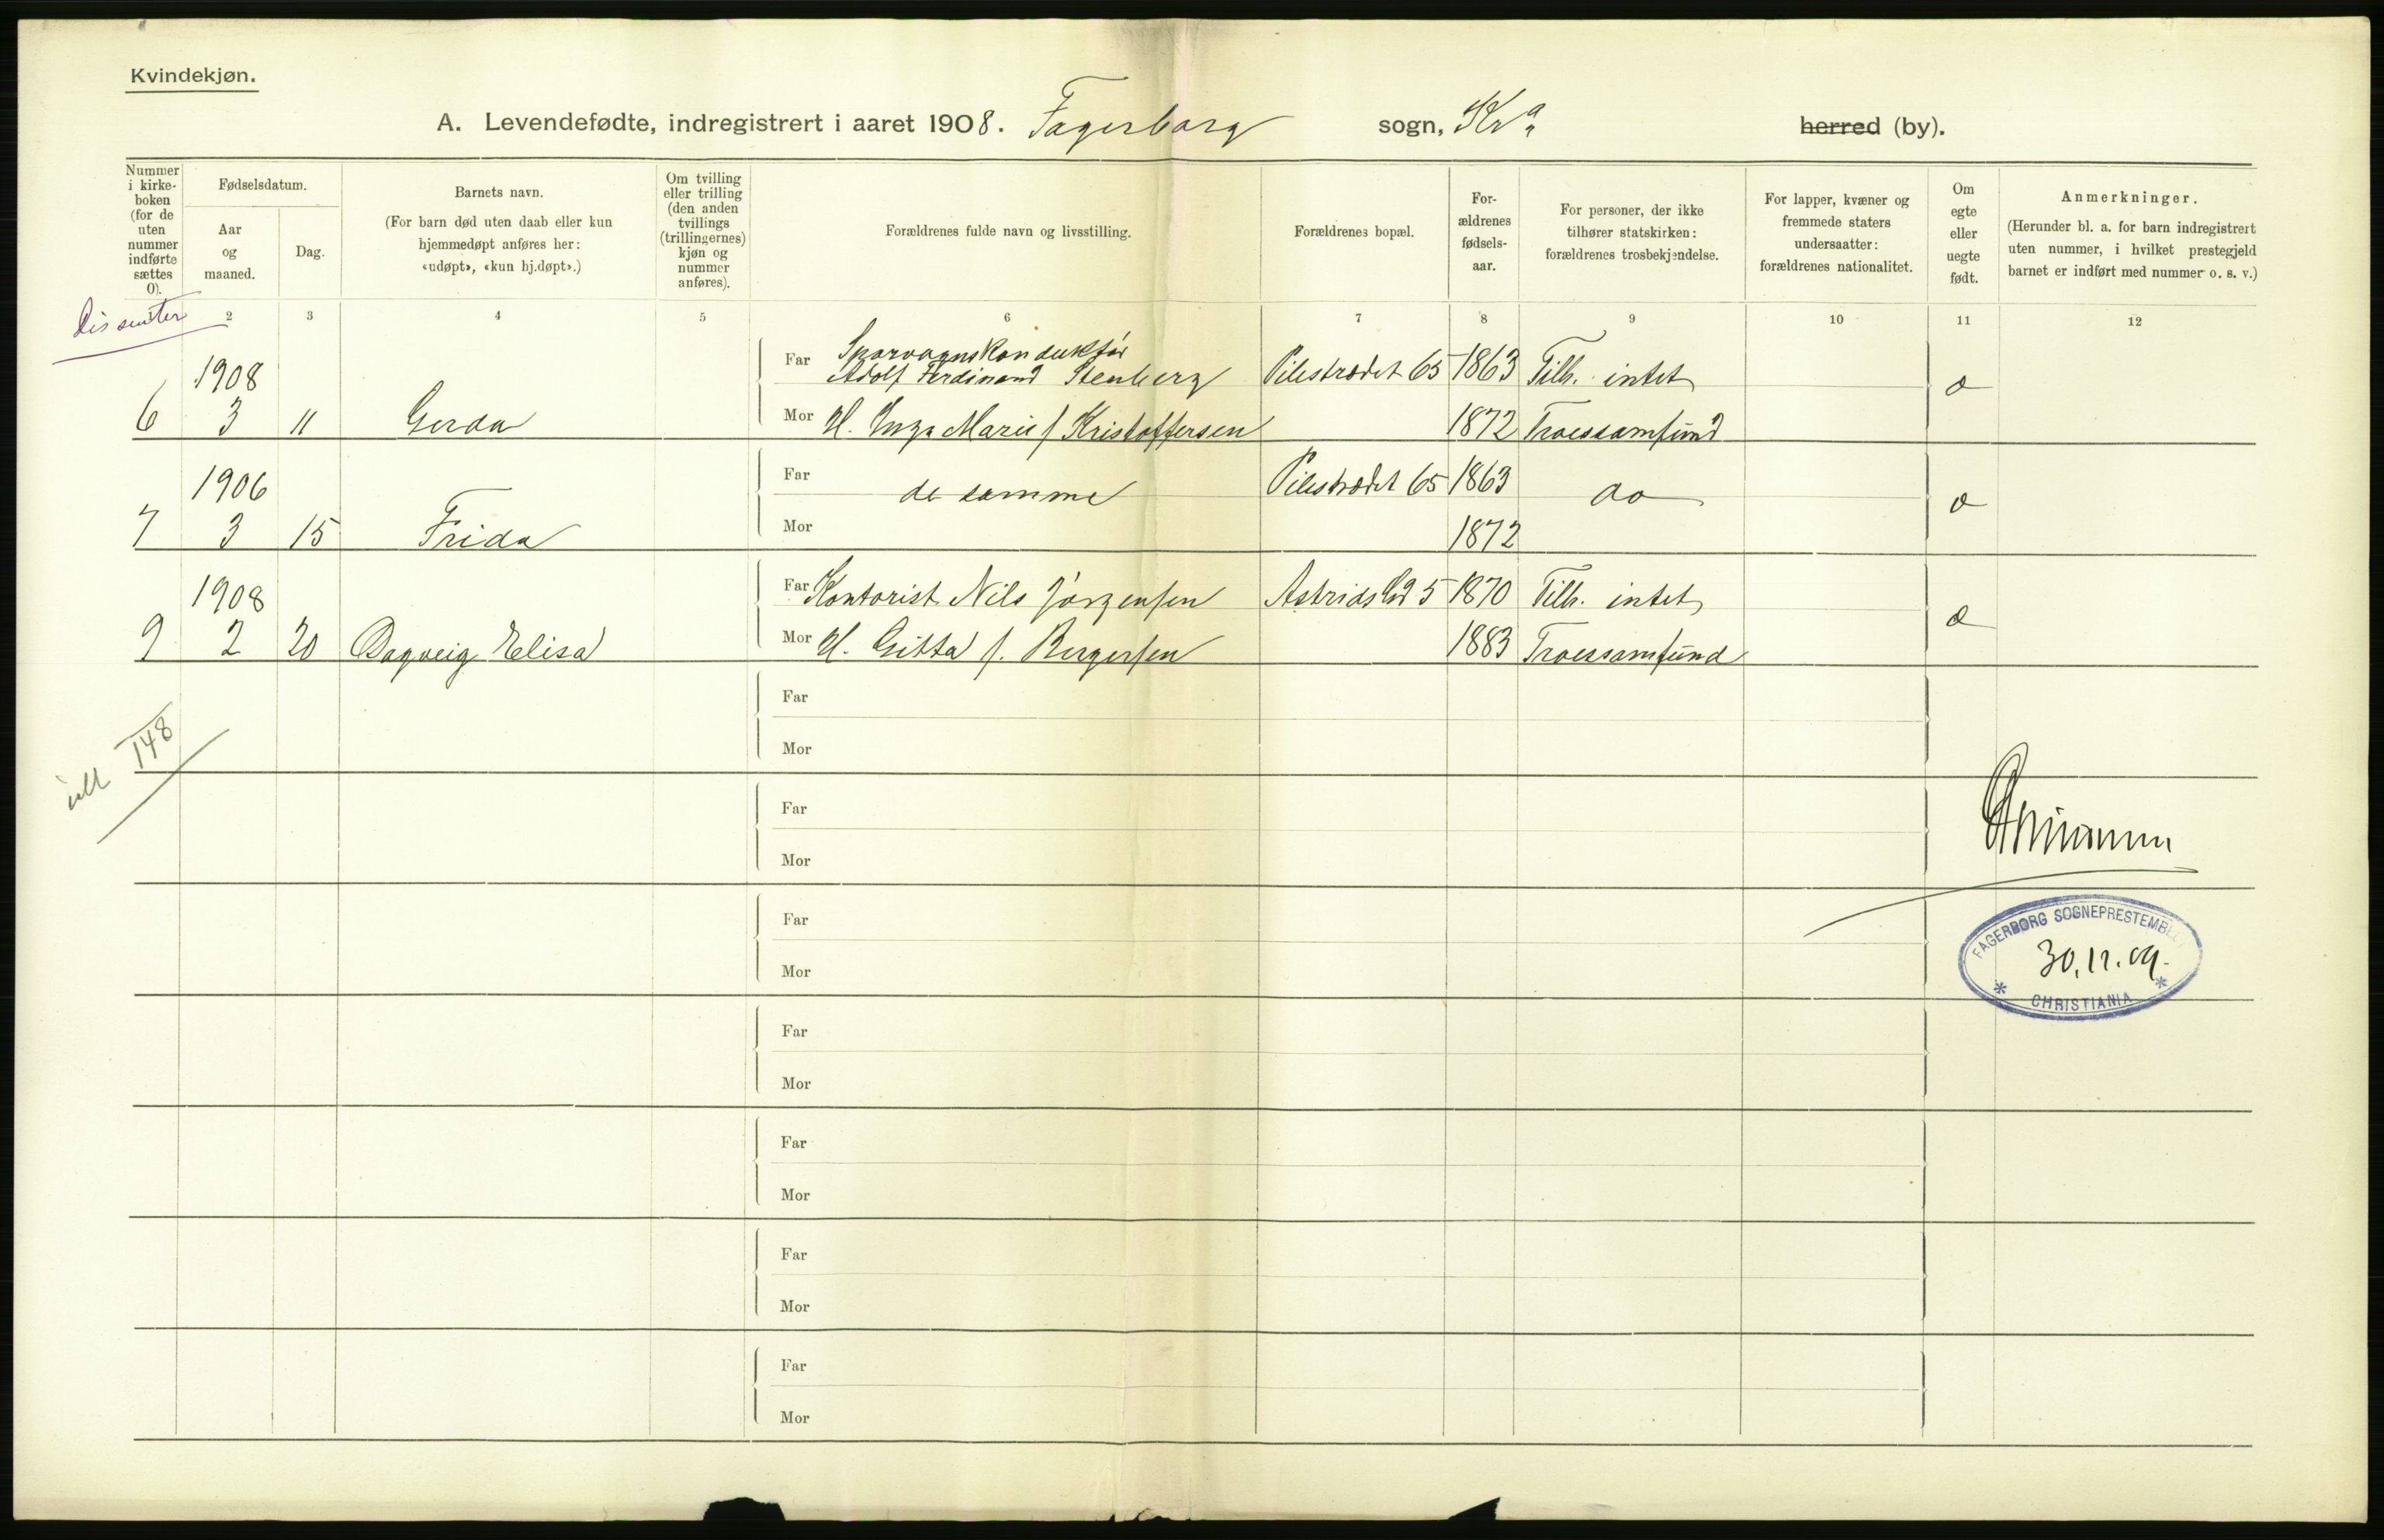 Kvindekjøn.
A. Levendefødte, indregistrert i aaret 1908. Fagerborg sogn, Kra herred (by).
Nummer i kirke-boken (for de uten nummer indførte sættes 0).
Fødselsdatum.
Aar og maaned.
Dag.
Barnets navn.
(For barn død uten daab eller kun hjemmedøpt anføres her: «udøpt», «kun hj.døpt».)
Om tvilling eller trilling (den anden tvillings (trillingernes) kjøn og nummer anføres).
Forældrenes fulde navn og livsstilling.
Forældrenes bopæl.
For-ældrenes fødsels-aar.
For personer, der ikke tilhører statskirken: forældrenes trosbekjendelse.
For lapper, kvæner og fremmede staters undersaatter: forældrenes nationalitet.
Om egte eller uegte født.
Anmerkninger.
(Herunder bl. a. for barn indregistrert uten nummer, i hvilket prestegjeld barnet er indført med nummer o. s. v.)
Dissenter
2 3 4 5 6 7 8 9 10 11 12
Sporvognskonduktør
1908 Far Adolf Ferdinand Stenberg Pilestrædet 65 1863 Tilh. intet
6 3 11 Gerda Mor H. Inga Marie f Kristoffersen 1872 Troessamfund
1906 Far de samme Pilestrædet 65 1863 do
7 3 15 Frida Mor 1872
1908 Far Kontorist Nils Jørgensen Astrids 5 1870 Tilh. intet
9 2 20 Dagveig Elisa Mor H. Gitta f. Bergersen 1883 Troessamfund
148
Far
Mor
Far
Mor
Far
Mor
FAGERBORG SOGNEPRESTEMBE
30.11.09.
CHRISTIANIA
Far
Mor
Far
Mor
Far
Mor
Far
Mor